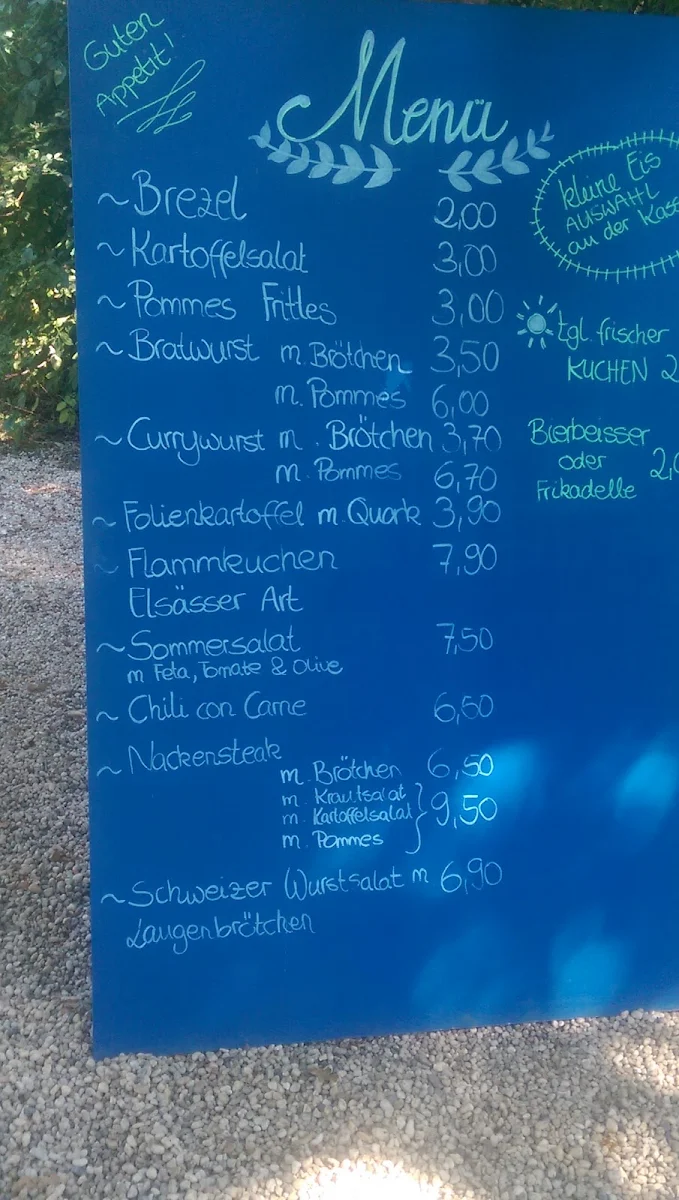 Guten
Appetit!
Menü
~ Brezel 2,00
~ Kartoffelsalat 3,00
~ Pommes Frittes 3,00
~ Bratwurst m. Brötchen 3,50
m. Pommes 6,00
~ Currywurst m. Brötchen 3,70
m. Pommes 6,70
~ Folienkartoffel m. Quark 3,90
~ Flammkuchen 7,90
Elsässer Art
~ Sommersalat 7,50
m Feta, Tomate & Olive
~ Chili con Carne 6,60
~ Nackensteak
m. Brötchen 6,50
m. Krautsalat
m. Kartoffelsalat } 9,50
m. Pommes
~ Schweizer Wurstsalat m 6,90
Laugenbrötchen
kleine Eis
AUSWAHL
an der Kass
tgl. frischer
KUCHEN 2
Bierbeisser
oder 2,0
Frikadelle